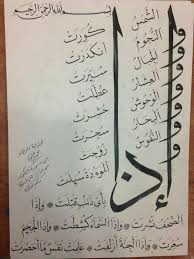 بسم الله الرحمن الرحيم
إذا
الشَّمْسُ كُوِّرَتْ
النُّجُومُ انْكَدَرَتْ
الْجِبَالُ سُيِّرَتْ
الْعِشَارُ عُطِّلَتْ
الْوُحُوشُ حُشِرَتْ
الْبِحَارُ سُجِّرَتْ
النُّفُوسُ زُوِّجَتْ
الْمَوْءُودَةُ سُئِلَتْ
بِأَيِّ ذَنْبٍ قُتِلَتْ * وَإِذَا
الصُّحُفُ نُشِرَتْ * وَإِذَا السَّمَاءُ كُشِطَتْ * وَإِذَا الْجَحِيمُ
سُعِّرَتْ * وَإِذَا الْجَنَّةُ أُزْلِفَتْ * عَلِمَتْ نَفْسٌ مَا أَحْضَرَتْ